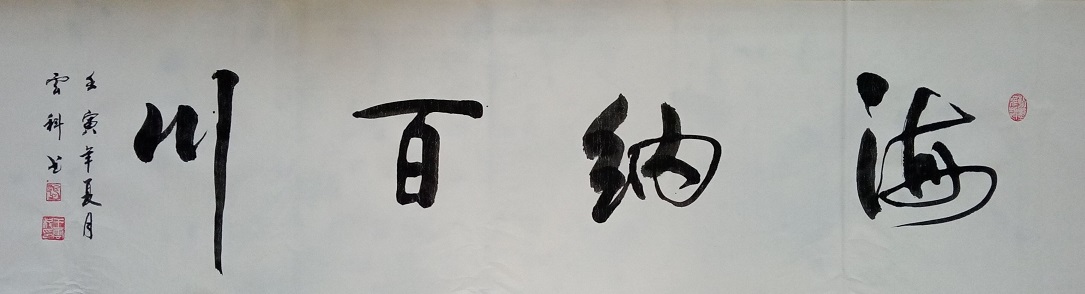 海納百川
壬寅年夏月
雲科书